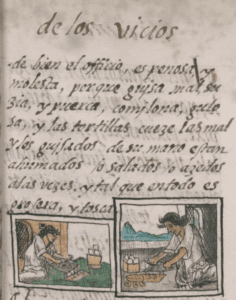 de los vicios
de bien el officio, es penosa y
molesta, porque guisa mal, su
zia, y puerca, comilona, golo
sa, y las tortillas cueze las mal
y los guisados de su mano estan
ahumados o salados o azedos
a las vezes, y tal que en todo es
grosera, y tosca